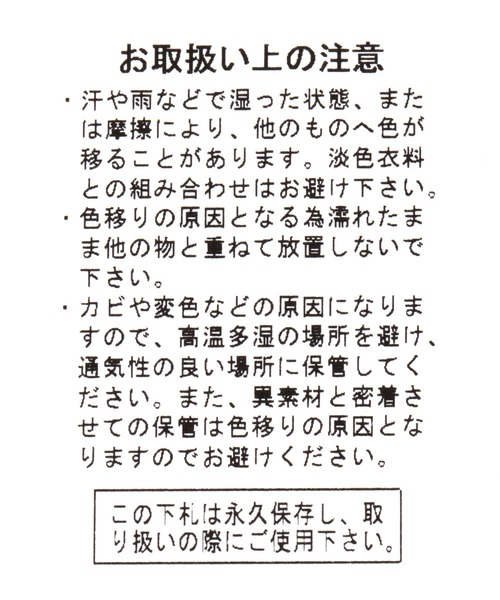 お取扱い上の注意
・汗や雨などで湿った状態、また
は摩擦により、他のものへ色が
移ることがあります。淡色衣料
との組み合わせはお避け下さい。
・色移りの原因となる為濡れたま
ま他の物と重ねて放置しないで
下さい。
・カビや変色などの原因になりま
すので、高温多湿の場所を避け、
通気性の良い場所に保管してく
ださい。また、異素材と密着さ
せての保管は色移りの原因とな
りますのでお避けください。
この下札は永久保存し、取
り扱いの際にご使用下さい。